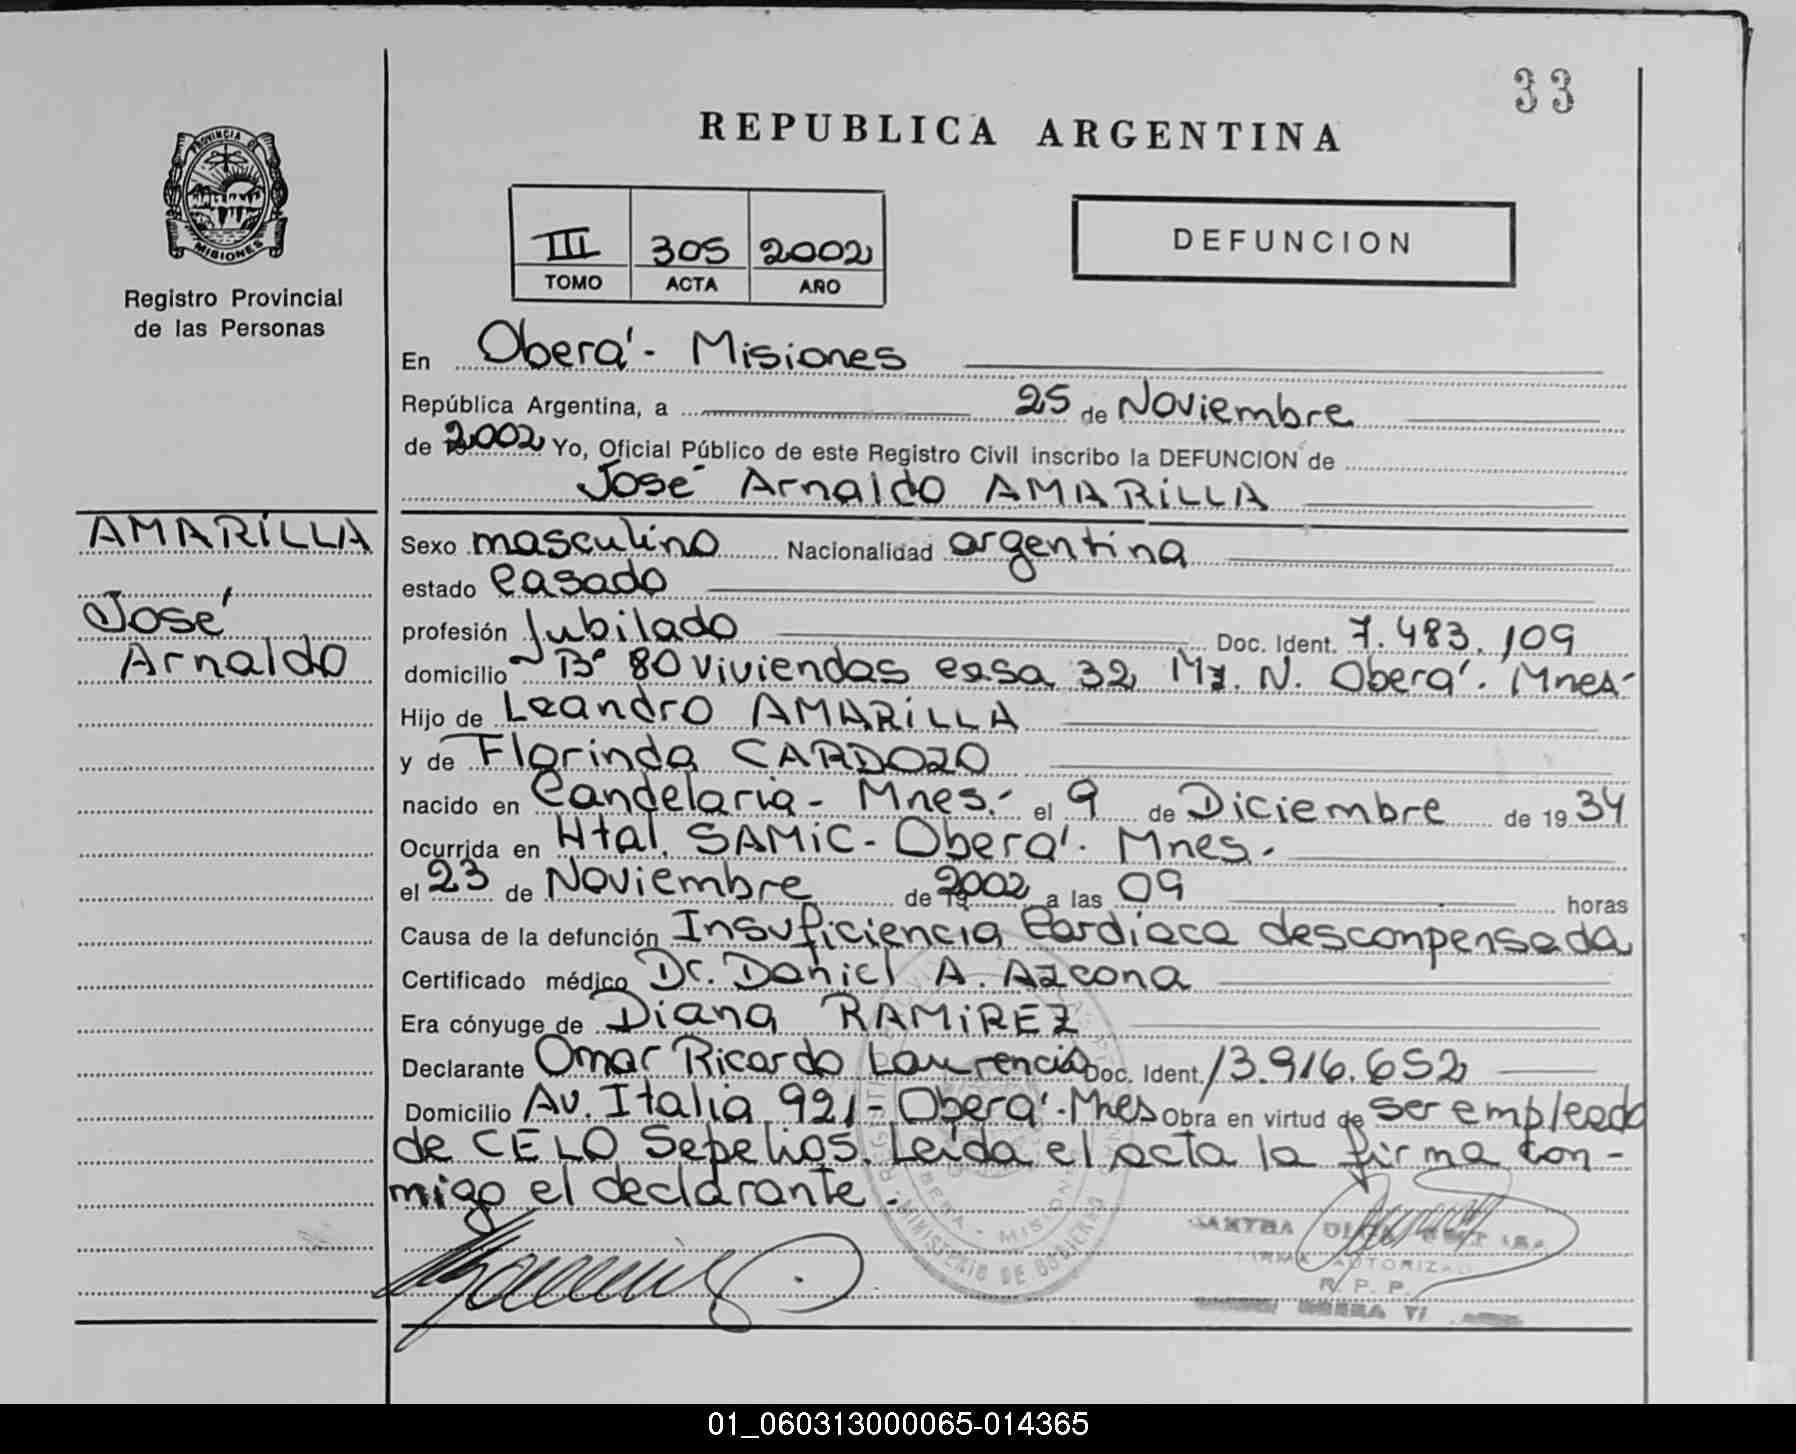 33
REPUBLICA ARGENTINA
PROVINCIA DE
MISIONES
Registro Provincial
de las Personas
III 305 2002
TOMO ACTA AÑO
DEFUNCION
En Oberá - Misiones
República Argentina, a 25 de Noviembre
de 2002 Yo, Oficial Público de este Registro Civil inscribo la DEFUNCION de
José Arnaldo AMARILLA
AMARILLA
José
Arnaldo
Sexo masculino Nacionalidad argentina
estado casado
profesión Jubilado Doc. Ident. 7.483.109
domicilio B° 80 Viviendas casa 32 Mz. N. Oberá. Mnes-
Hijo de Leandro AMARILLA
y de Florinda CARDOZO
nacido en Candelaria - Mnes.- el 9 de Diciembre de 1934
Ocurrida en Htal. SAMIC - Oberá. Mnes.
el 23 de Noviembre de 2002 a las 09 horas
Causa de la defunción Insuficiencia Cardiaca descompensada
Certificado médico Dr. Daniel A. Azcona
Era cónyuge de Diana RAMIREZ
Declarante Omar Ricardo Laurencio Doc. Ident. 13.916.652
Domicilio Av. Italia 921 - Oberá - Mnes Obra en virtud de ser empleado
de CELO Sepelios. Leída el acta la firma con-
migo el declarante.
MINISTERIO DE GOBIERNO
OBERA - MISIONES
FIRMA AUTORIZADA
R. P. P.
01_060313000065-014365